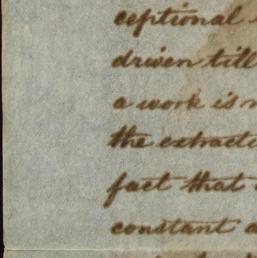 ceptional
driven till
a work is
the extracti
fact that
constant a